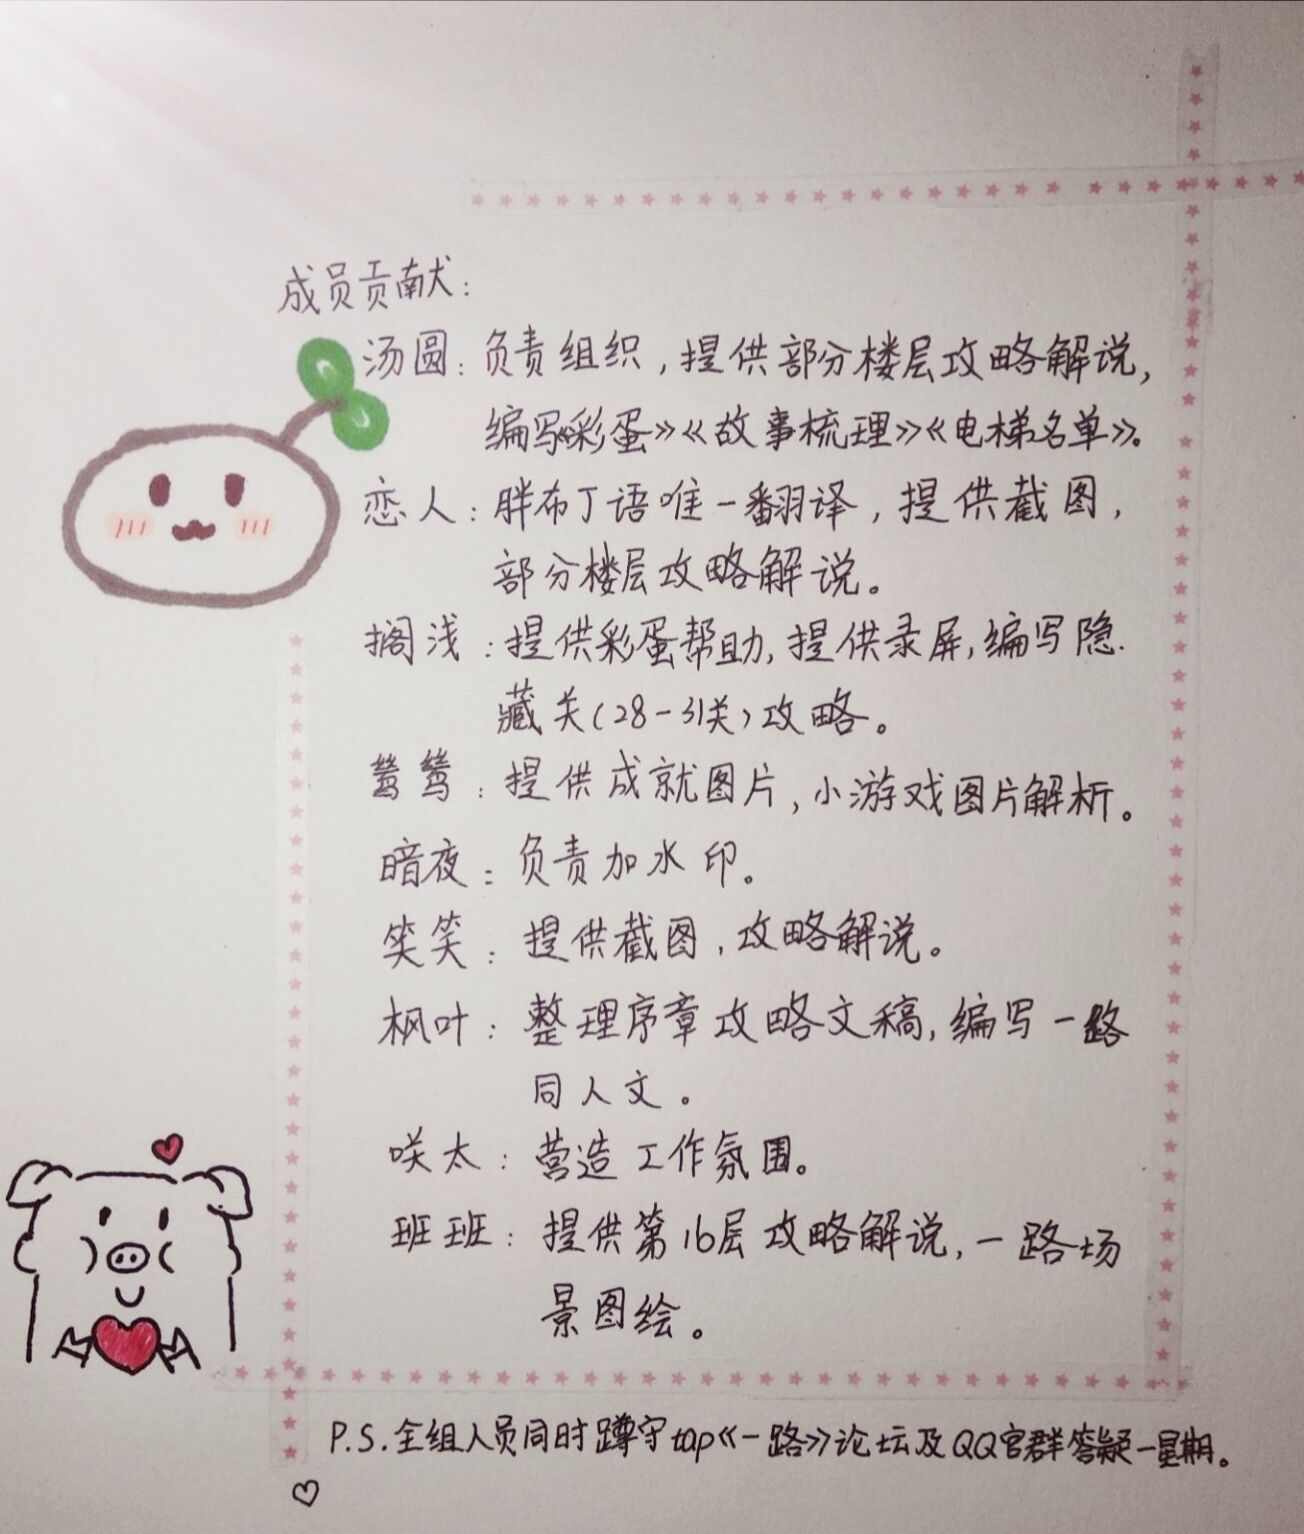 成员贡献：
汤圆：负责组织，提供部分楼层攻略解说，
编写《彩蛋》《故事梳理》《电梯名单》。
恋人：胖布丁语唯一翻译，提供截图，
部分楼层攻略解说。
搁浅：提供彩蛋帮助，提供录屏，编写隐
藏关（28-31关）攻略。
鸶鸶：提供成就图片，小游戏图片解析。
暗夜：负责加水印。
笑笑：提供截图，攻略解说。
枫叶：整理序章攻略文稿，编写一路
同人文。
咲太：营造工作氛围。
班班：提供第16层攻略解说，一路场
景图绘。
P.S.全组人员同时蹲守tap《一路》论坛及QQ官群答疑一星期。